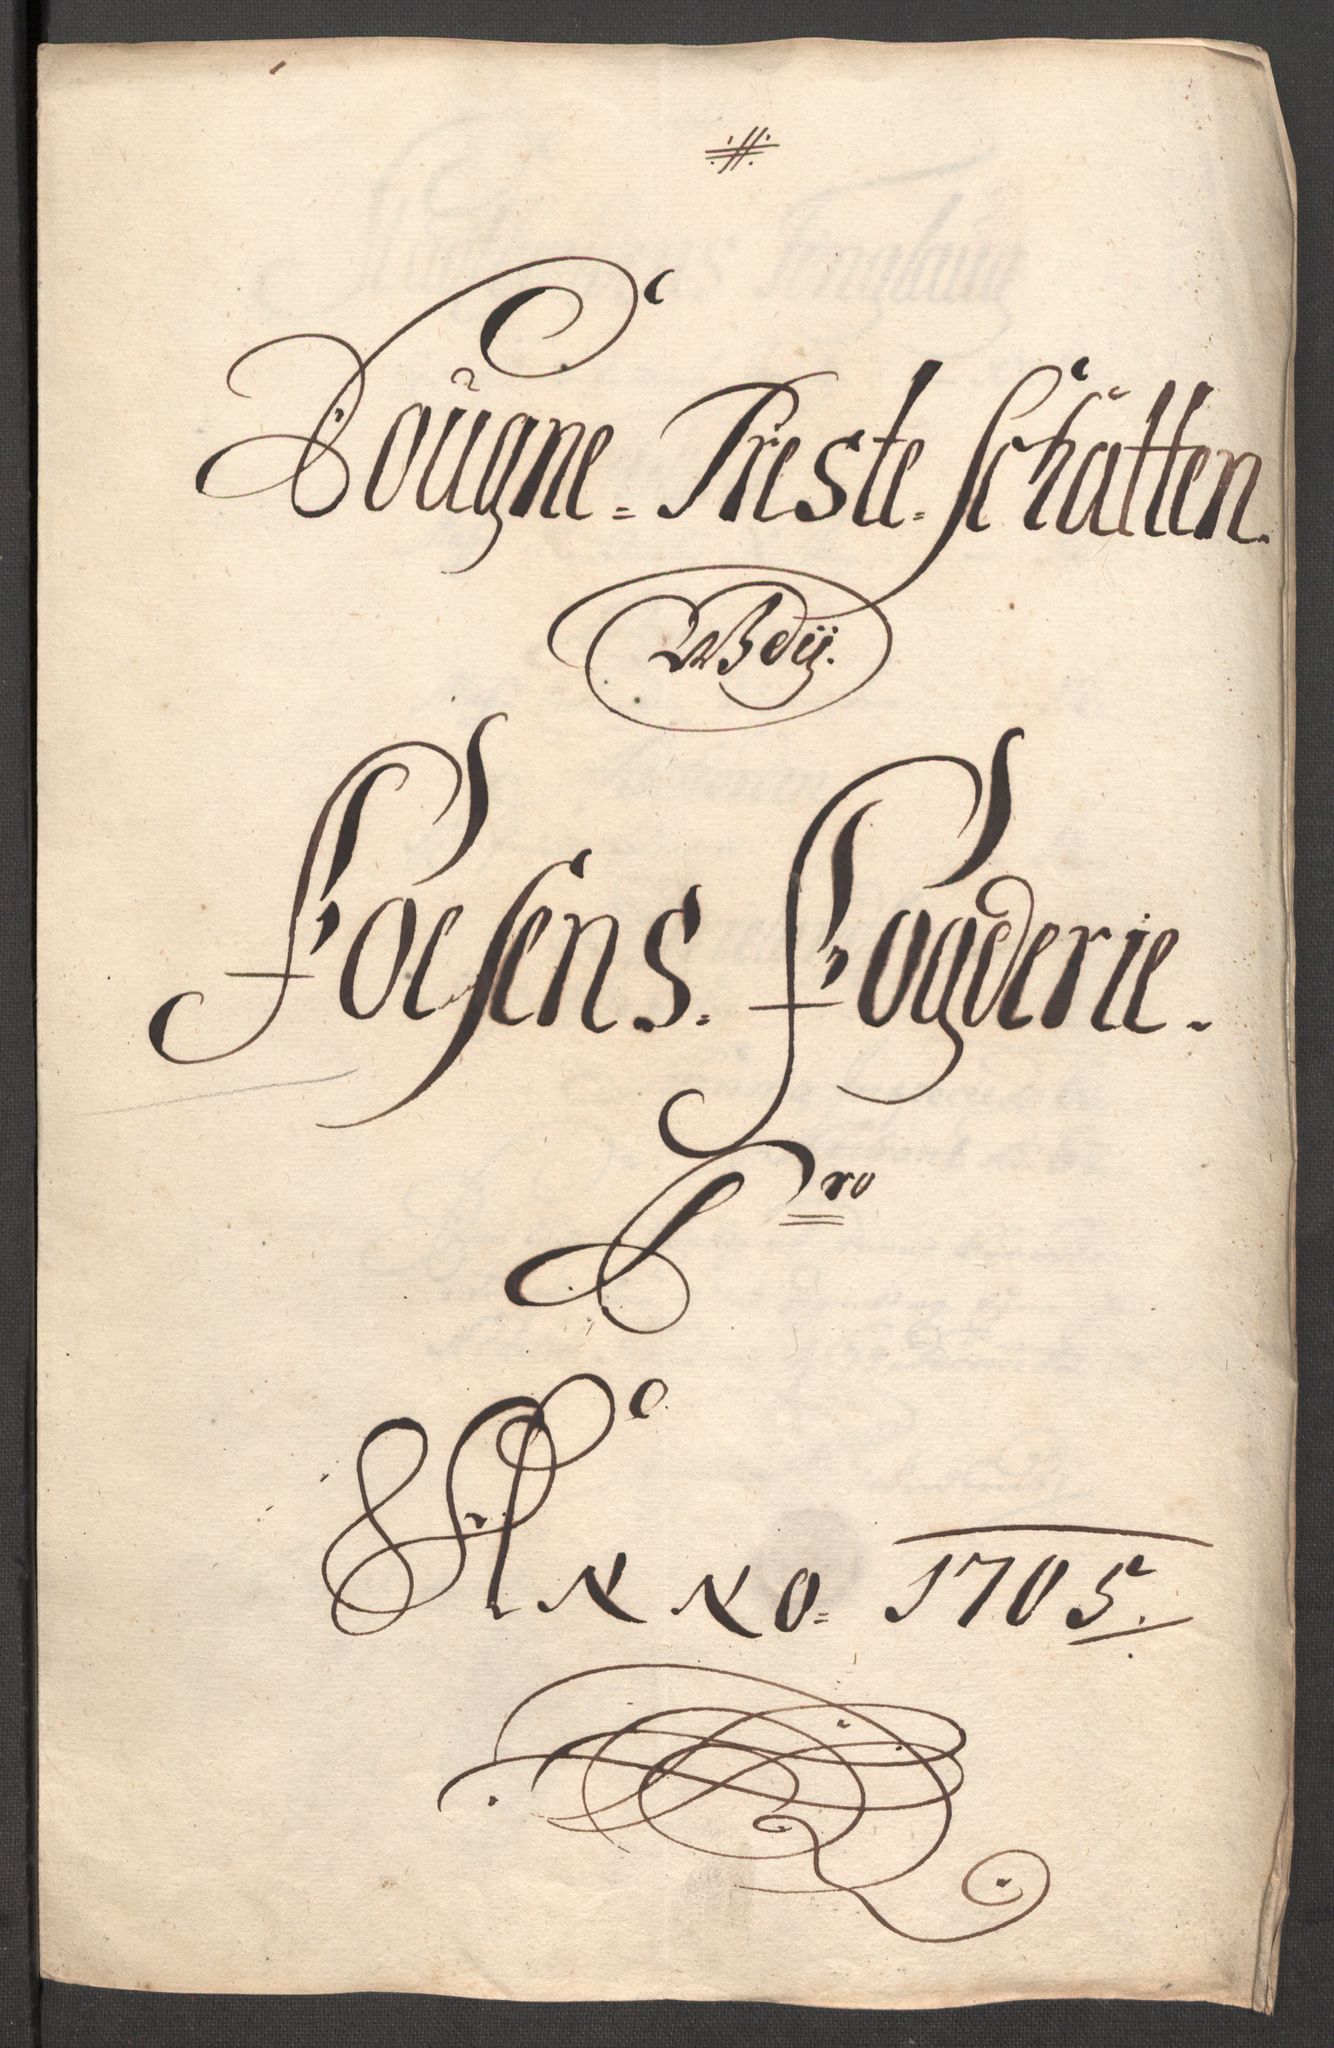 Sougne-Preste-Schatten.
Fosens. Fogderie.
Pro
Anno. 1705.